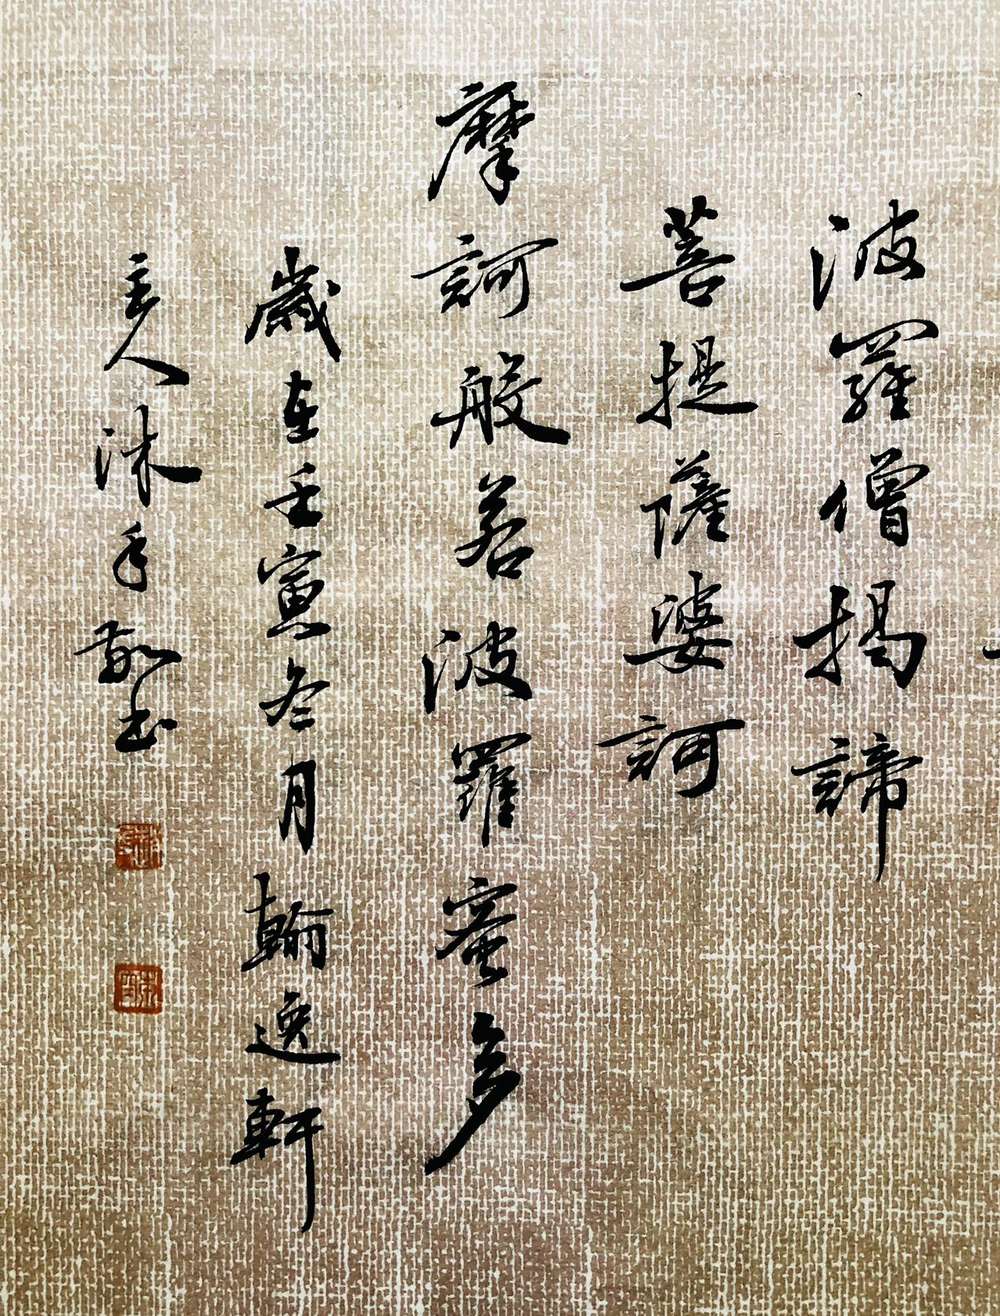 波羅僧揭諦
菩提薩婆訶
摩訶般若波羅蜜多
歲在壬寅冬月翰逸軒
主人沐手敬书